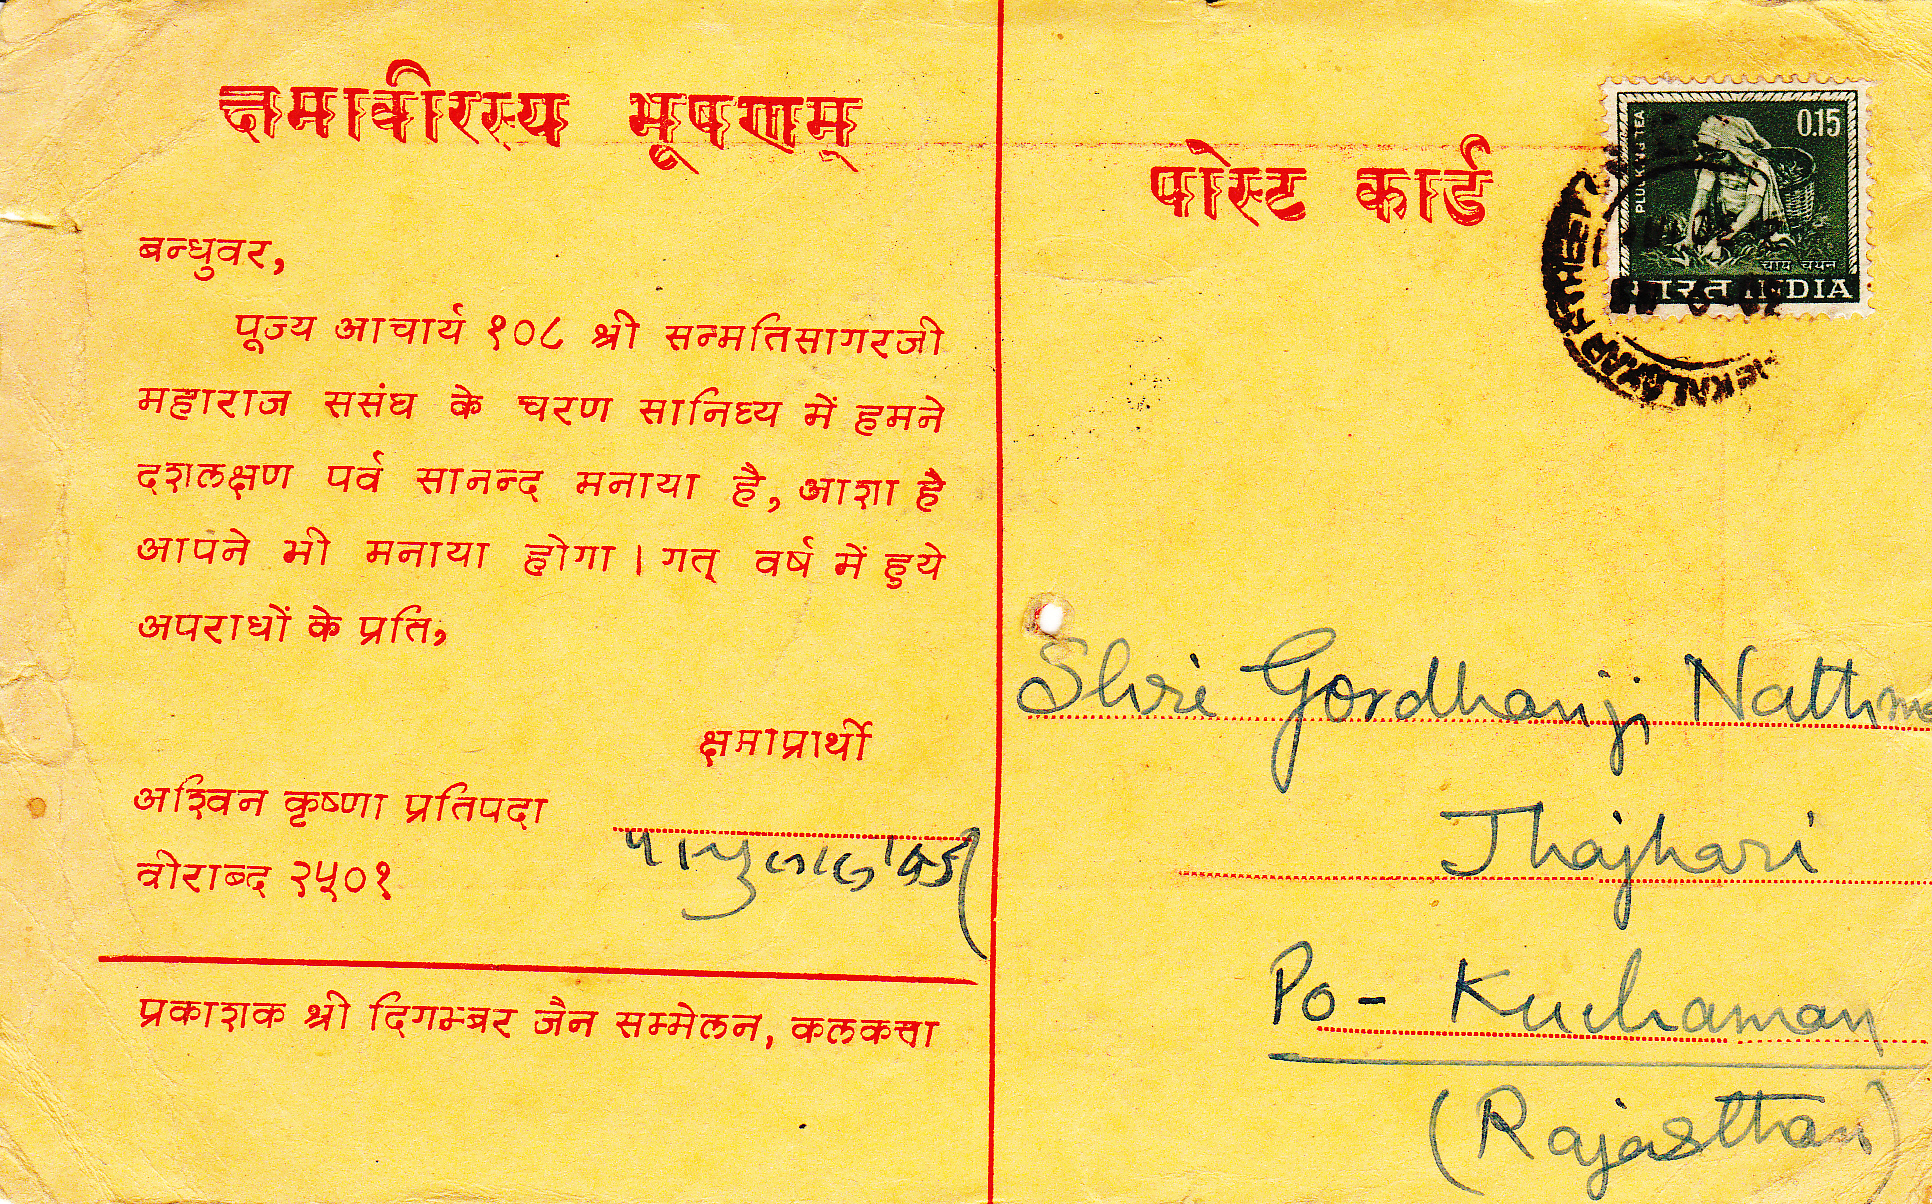 क्षमावीरस्य भूषणम्
बन्धुवर,
पूज्य आचार्य १०८ श्री सन्मतिसागरजी
महाराज ससंघ के चरण सानिध्य में हमने
दशलक्षण पर्व सानन्द मनाया है, आशा है
आपने भी मनाया होगा । गत् वर्ष में हुये
अपराधों के प्रति,
क्षमाप्रार्थी
अश्विन कृष्णा प्रतिपदा
वीराब्द २५०१
प्रकाशक श्री दिगम्बर जैन सम्मेलन, कलकत्ता
पोस्ट कार्ड
0.15
PLUCKING TEA
चाय चयन
भारत INDIA
Shri Gordhanji
Jhajhari
Po - Kuchaman
(Rajasthan)